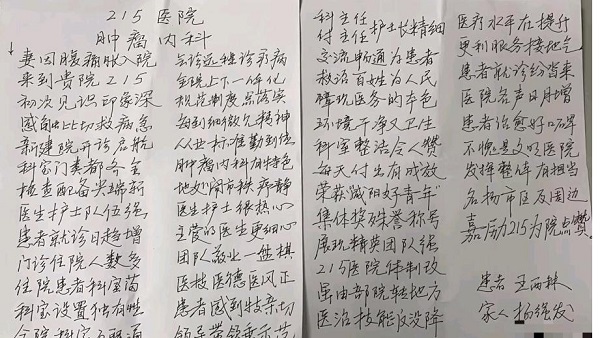 215医院
肿瘤内科
妻因腹痛收入院
来到贵院215
初次见识印象深
感触比切救病急
新建院开诊启航
科室门类都齐全
检查配备
医生护士队伍强
患者就诊日趋增
门诊住院人数多
住院患者科室商
科室设置独有性
会诊远程诊百病
全院上下一体化
规范制度总落实
每到细微欠精神
从业标准勤到位
肿瘤内科有特色
地处闹市楼房静
医生护士很热心
主管的医生更细心
团队敬业一盘棋
医技医德医风正
患者感到特亲切
领导带领垂示范
科主任
付主任护士长精细
交流畅通为患者
救治百姓为人民
体现医务的本色
环境干净又卫生
科室整洁令人赞
每天付出有成效
荣获咸阳好青年
集体奖殊誉称号
展现精英团队强
215医院体制改
虽由部院转地方
医治技能没降
医疗水平在提升
更利服务接地气
患者就诊纷沓来
医院名声日月增
患者治愈好口碑
不愧是文明医院
发挥整体有担当
名扬市区及周边
嘉励215为院点赞。
患者 王西林
家人 杨经发